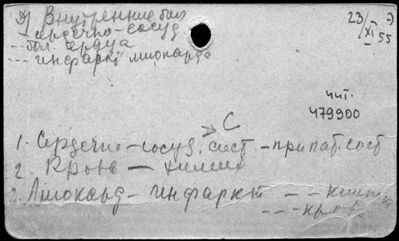 э) Внутренние бол
— сердечно-сосуд
— бол. сердца
--- инфаркт миокарда
23/XI – 55
чит.
479900
С
1. Сердечно-сосуд. сист. – при пат. сост
2. Кровь — химия
3. Миокард – инфаркт – –
– – – кров